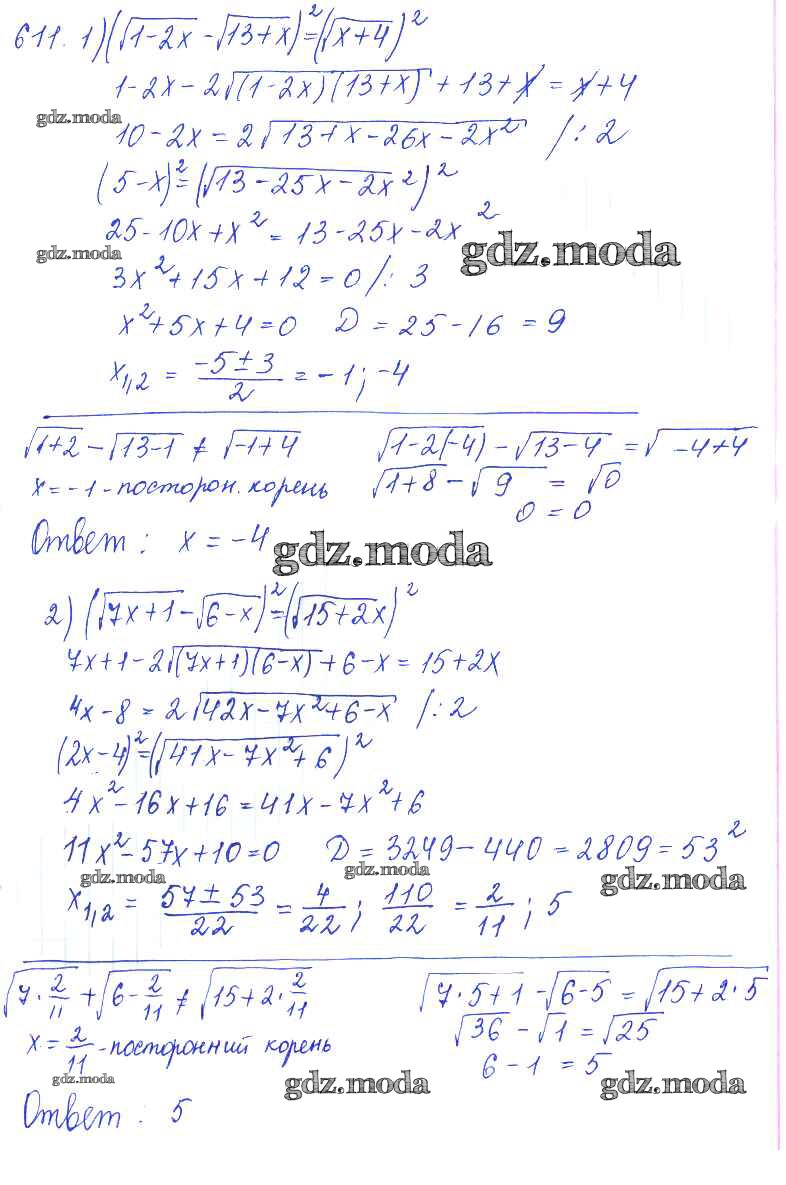 611. 1) (√(1-2x) - √(13+x))² = (√(x+4))²
1-2x - 2√((1-2x)(13+x)) + 13+x = x+4
gdz.moda
10-2x = 2√(13+x-26x-2x²) /: 2
(5-x)² = (√(13-25x-2x²))²
25-10x+x² = 13-25x-2x²
gdz.moda gdz.moda
3x²+15x+12=0 /: 3
x²+5x+4=0 D = 25-16 = 9
x₁,₂ = (-5±3)/2 = -1; -4
√(1+2) - √(13-1) ≠ √(-1+4) √(1-2(-4)) - √(13-4) = √(-4+4)
x = -1 - посторон. корень √(1+8) - √9 = √0
0 = 0
Ответ: x = -4
gdz.moda
2) (√(7x+1) - √(6-x))² = (√(15+2x))²
7x+1 - 2√((7x+1)(6-x)) + 6-x = 15+2x
4x-8 = 2√(42x-7x²+6-x) /: 2
(2x-4)² = (√(41x-7x²+6))²
4x²-16x+16 = 41x-7x²+6
11x²-57x+10=0 D = 3249-440 = 2809 = 53²
gdz.moda gdz.moda gdz.moda
x₁,₂ = (57±53)/22 = 4/22; 110/22 = 2/11; 5
√(7·2/11) + √(6-2/11) ≠ √(15+2·2/11) √(7·5+1) - √(6-5) = √(15+2·5)
√36 - √1 = √25
x = 2/11 - посторонний корень 6-1 = 5
gdz.moda gdz.moda gdz.moda
Ответ: 5